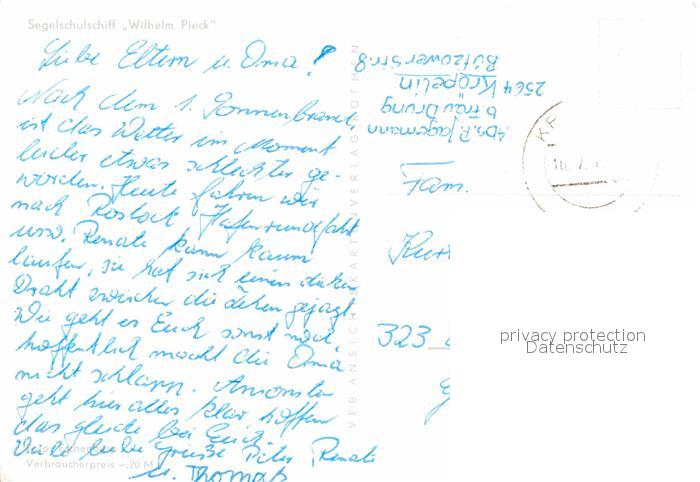 Segelschulschiff „Wilhelm Pieck"
Liebe Eltern u. Oma!
Nach dem 1. Sonnenbrand,
ist das Wetter im Moment
leider etwas schlechter ge-
worden. Heute fahren wir
nach Rostock Hafenrundfahrt
usw. Renate kann kaum
laufen, sie hat sich einen dicken
Draht zwischen die Zehen gejagt.
Wie geht es Euch sonst noch,
hoffentlich macht die Oma
nicht schlapp. Ansonsten
geht hier alles klar hoffen
das gleiche bei Euch.
Viele liebe Grüsse Peter, Renate
u. Thomas
Verbraucherpreis –,20 M
VEB ANSICHTSKARTENVERLAG KÖTHEN
Abs. P. Jagemann
b. Frau Drung
2564 Kröpelin
Bützowerstr. 8
Fam.
Kurt
323
privacy protection
Datenschutz